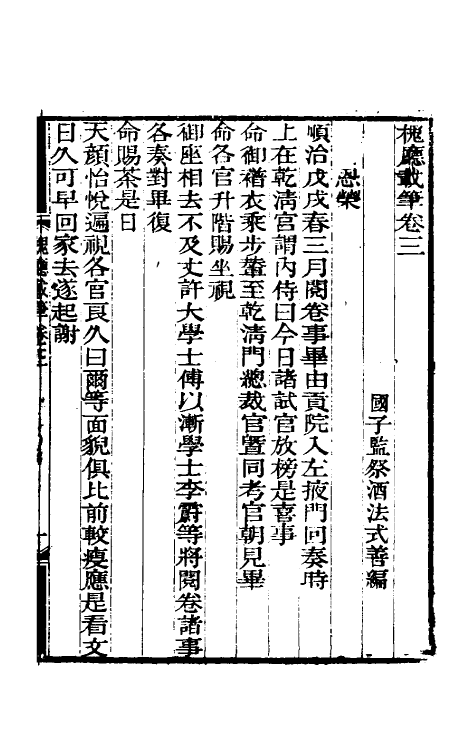 槐廳載筆卷三
國子監祭酒法式善編
恩榮
順治戊戌春三月閱卷事畢由貢院入左掖門回奏時
上在乾淸宮謂內侍曰今日諸試官放榜是喜事
命御䙝衣乘步輦至乾淸門總裁官曁同考官朝見畢
命各官升階賜坐視
御座相去不及丈許大學士傅以漸學士李霨等將閱卷諸事
各奏對畢復
命賜茶是日
天顏怡悅遍視各官良久曰爾等面貌俱比前較瘦應是看文
日久可早回家去遂起謝
槐廳載筆卷三
一